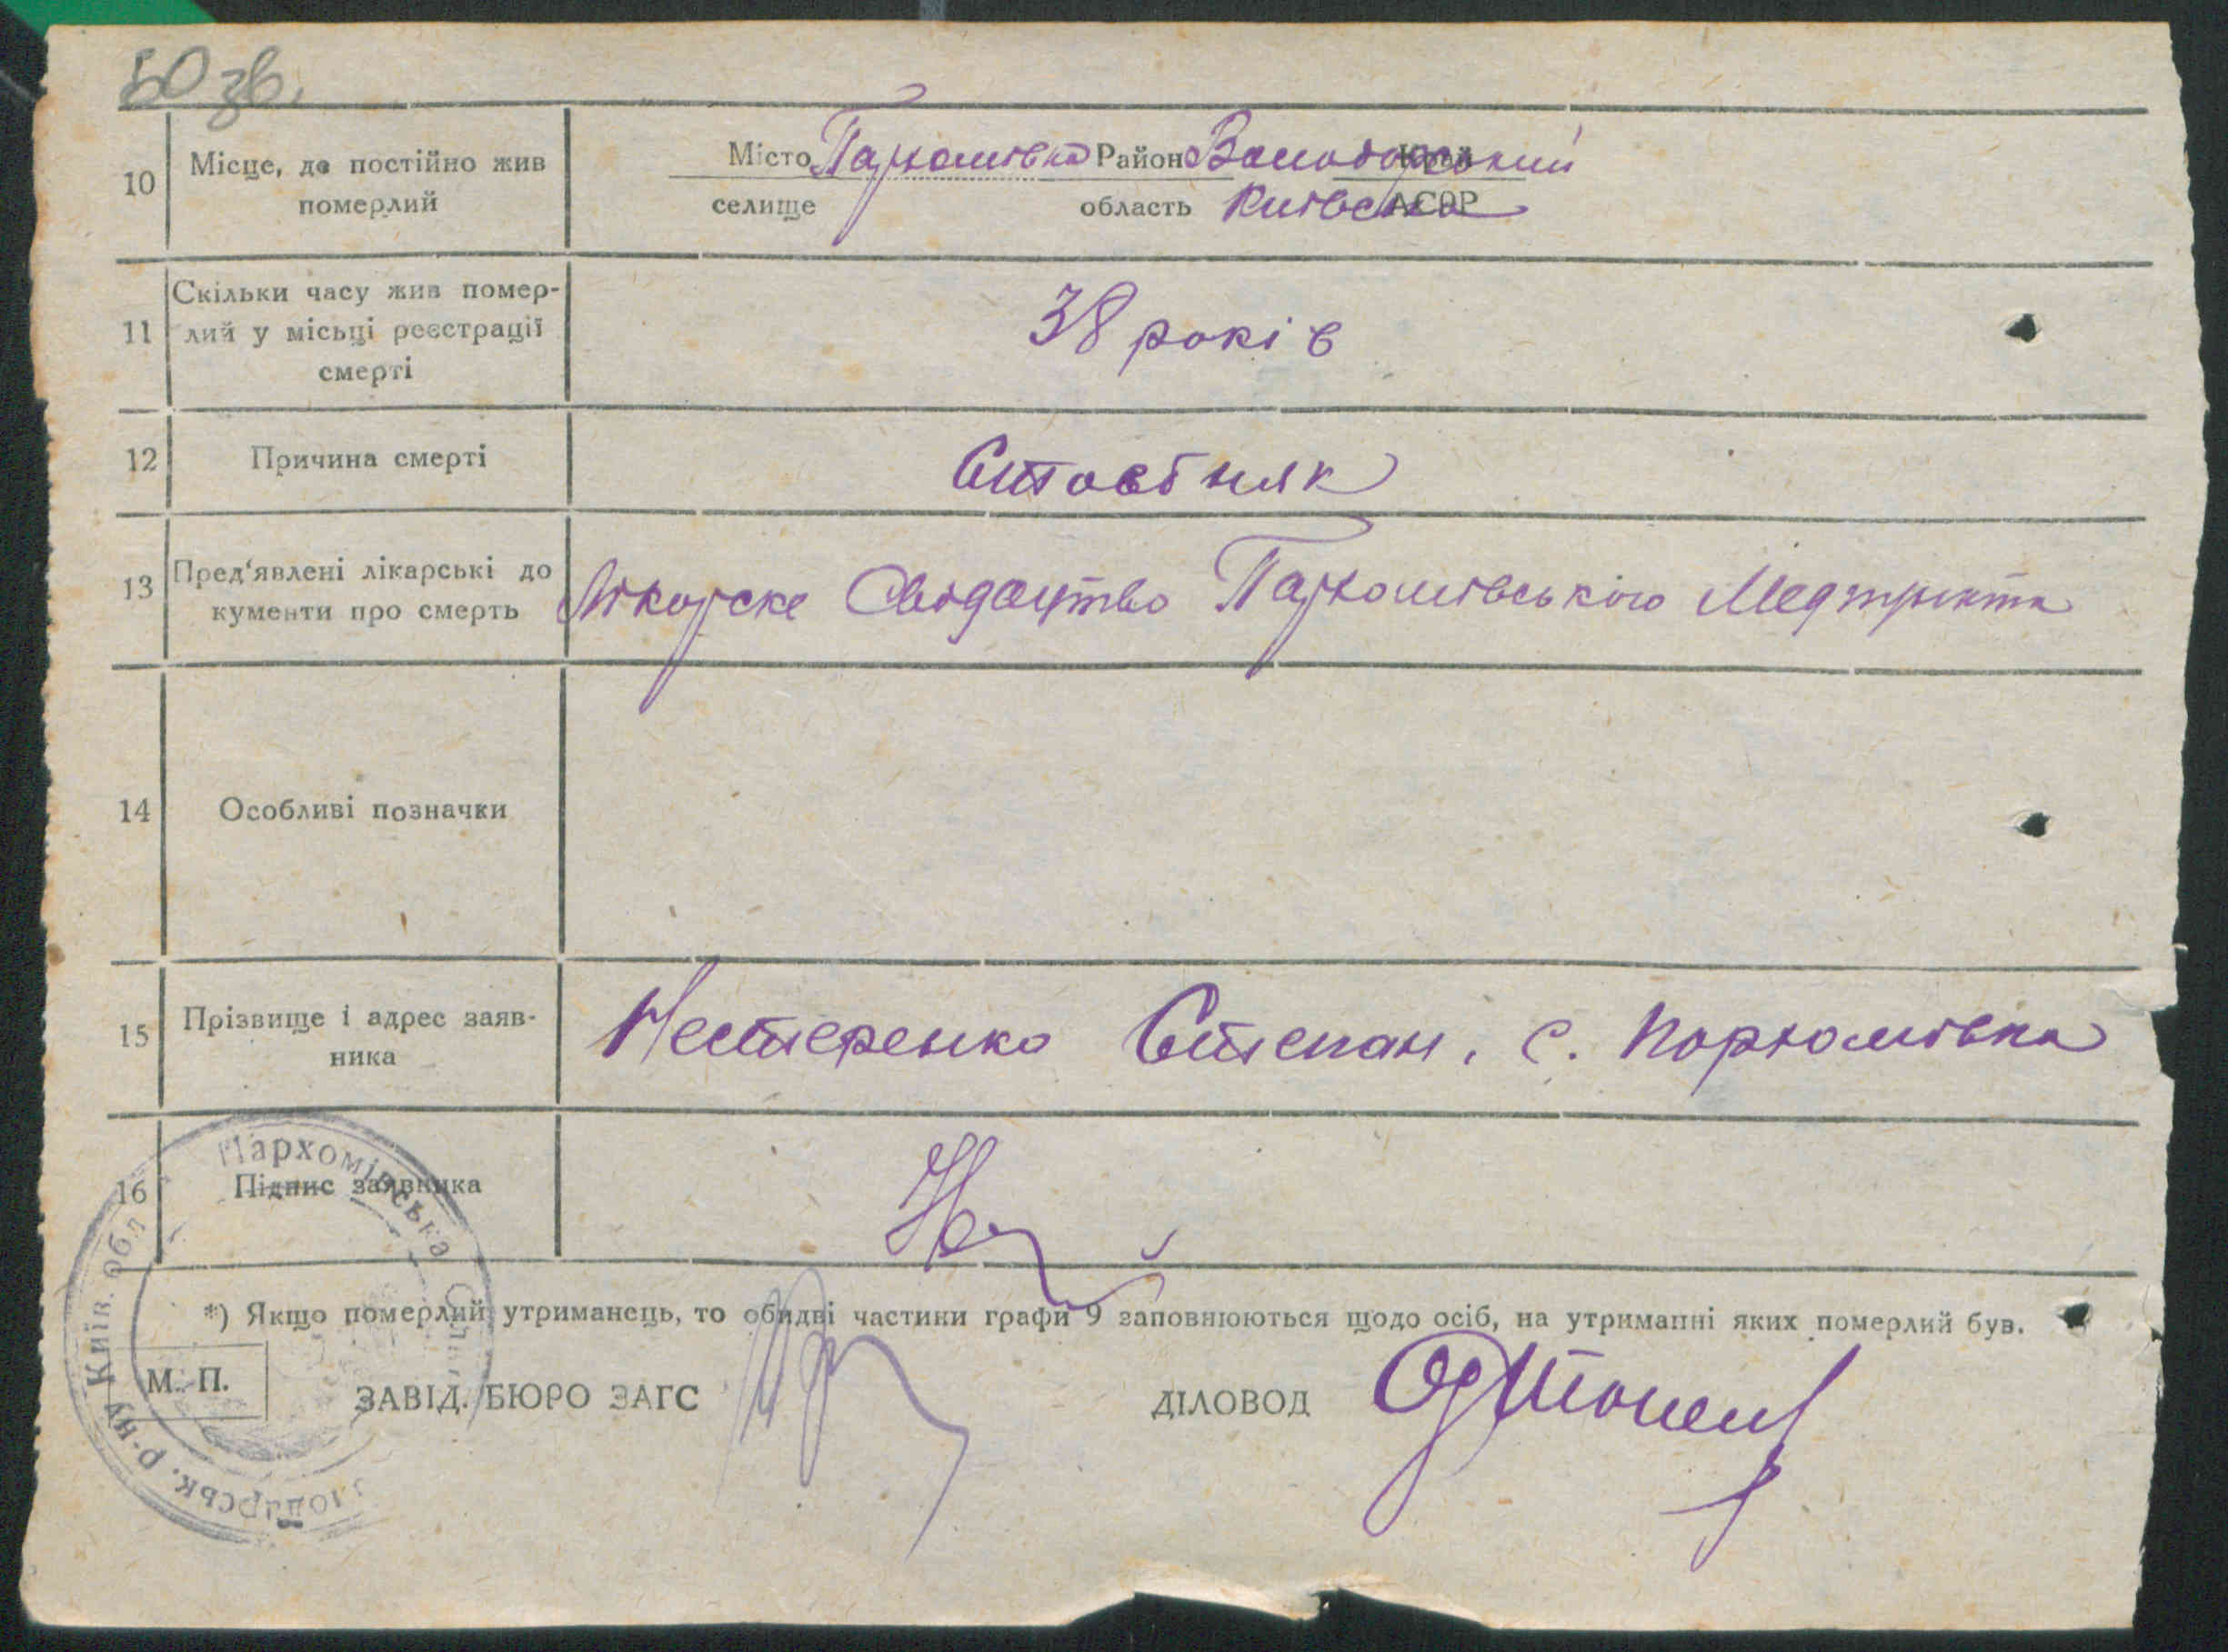 50 зв.
10 Місце, де постійно жив померлий
Місто Пархомівка Район Володарський Край
селище область Київська АСРР
11 Скільки часу жив помер-
лий у місьці реєстрації
смерті
38 років
12 Причина смерті
Стовбняк
13 Пред'явлені лікарські до
кументи про смерть
Лікарске Свідоцтво Пархомівського Медпункта
14 Особливі позначки
15 Прізвище і адрес заяв-
ника
Нестеренко Степан, с. Пархомівка
16 Підпис заявника
*) Якщо померлий утриманець, то обидві частини графи 9 заповнюються щодо осіб, на утриманні яких померлий був.
М. П.
ЗАВІД. БЮРО ЗАГС
ДІЛОВОД
Пархомівська Сільс
лодарськ. р-ну Київ. обл